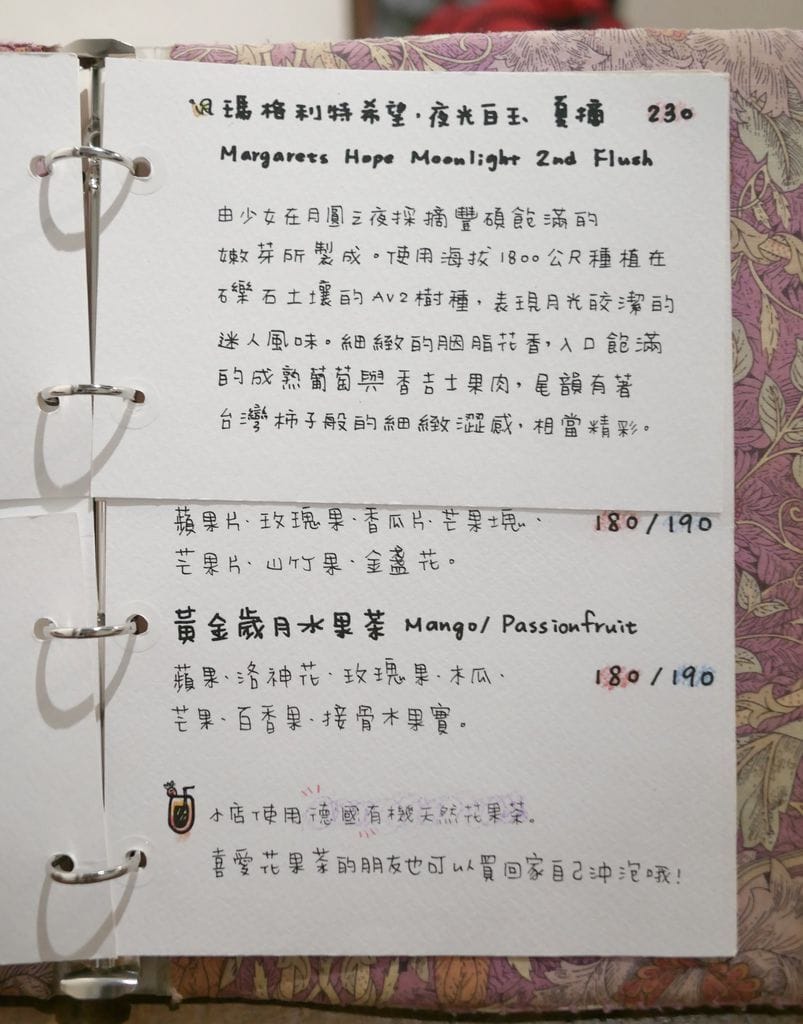 瑪格利特希望·夜光白玉 夏摘 230
Margarets Hope Moonlight 2nd Flush
由少女在月圓之夜採摘豐碩飽滿的
嫩芽所製成。使用海拔1800公尺種植在
礫石土壤的AV2樹種,表現月光皎潔的
迷人風味。細緻的胭脂花香,入口飽滿
的成熟葡萄與香吉士果肉,尾韻有著
台灣柿子般的細緻澀感,相當精彩。
蘋果片、玫瑰果、香瓜片、芒果塊、 180/190
芒果片、山竹果、金盞花。
黃金歲月水果茶 Mango/Passionfruit
蘋果、洛神花、玫瑰果、木瓜、 180/190
芒果、百香果、接骨木果實。
本店使用德國有機天然花果茶。
喜愛花果茶的朋友也可以買回家自己沖泡哦!